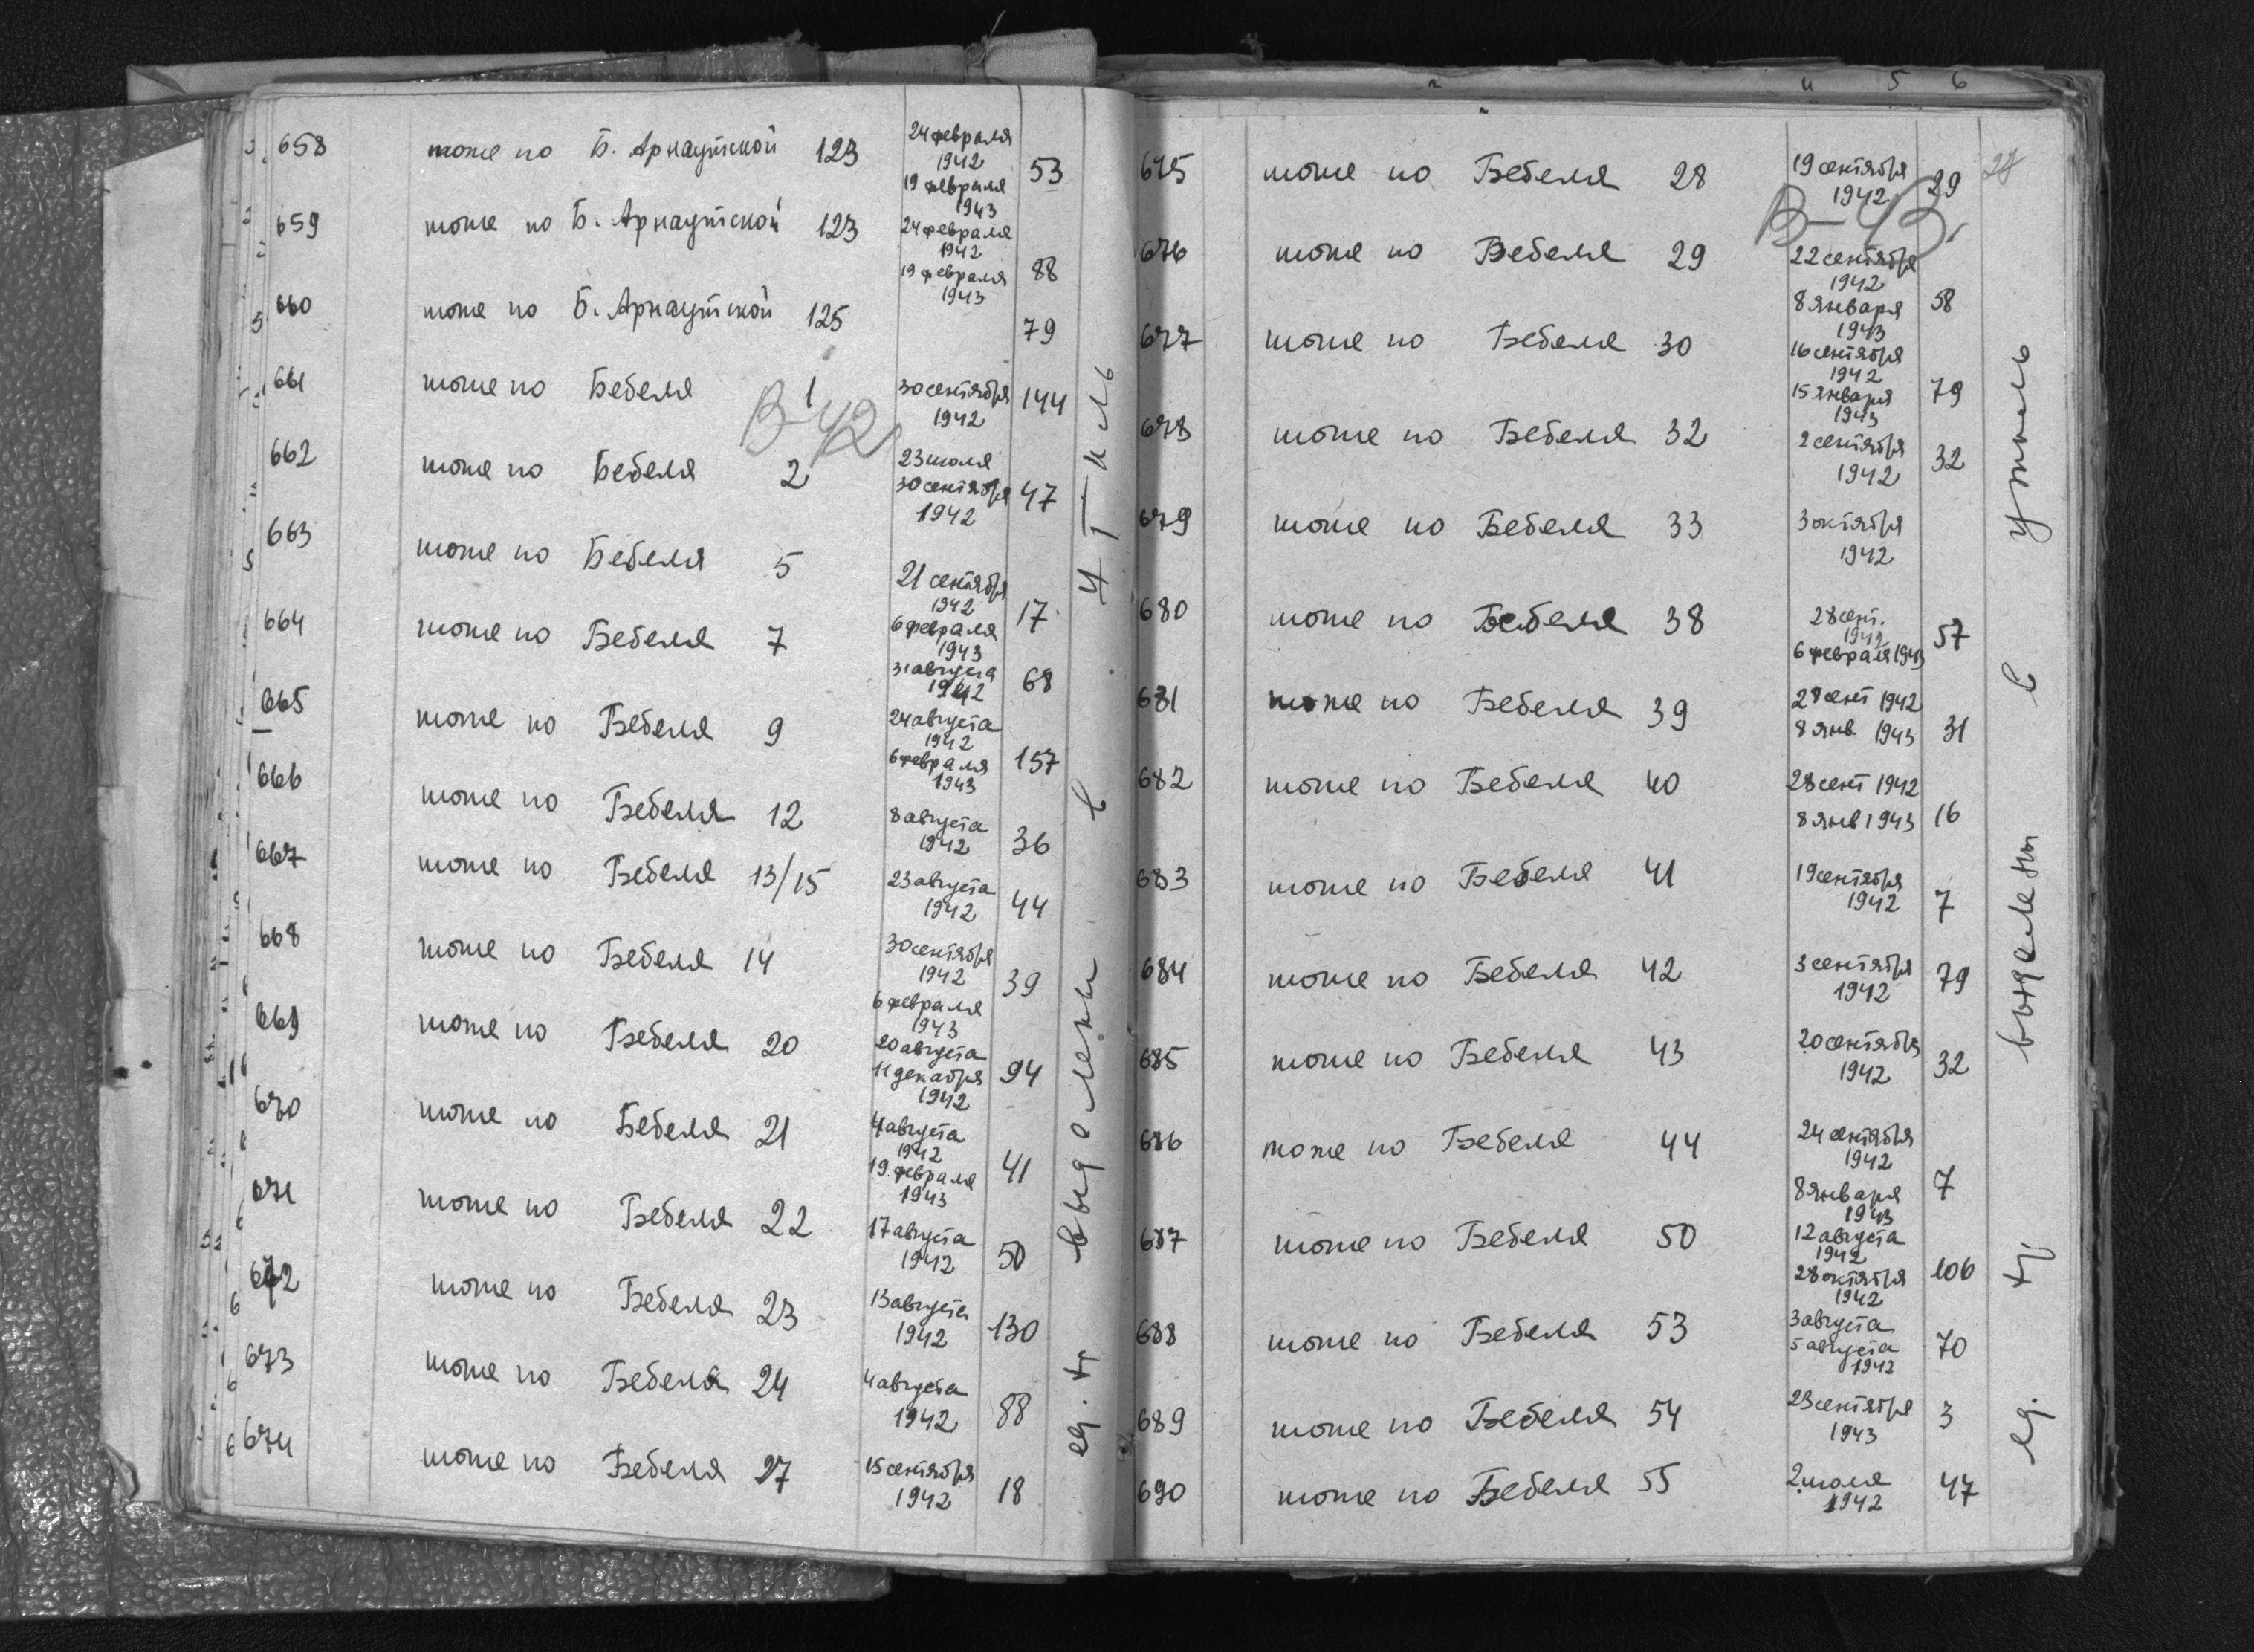 658 тоже по Б. Арнаутской 123 24 февраля 1942 19 февраля 1943 53
659 тоже по Б. Арнаутской 123 24 февраля 1942 19 февраля 1943 88
660 тоже по Б. Арнаутской 125 79
661 тоже по Бебеля 1 30 сентября 1942 144
В-42
662 тоже по Бебеля 2 23 июля 30 сентября 1942 47
663 тоже по Бебеля 5 21 сентября 1942 6 февраля 1943 17
664 тоже по Бебеля 7 31 августа 1942 68
665 тоже по Бебеля 9 24 августа 1942 6 февраля 1943 157
666 тоже по Бебеля 12 8 августа 1942 36
667 тоже по Бебеля 13/15 23 августа 1942 44
668 тоже по Бебеля 14 30 сентября 1942 6 февраля 1943 39
669 тоже по Бебеля 20 20 августа 11 декабря 1942 94
670 тоже по Бебеля 21 4 августа 1942 19 февраля 1943 41
671 тоже по Бебеля 22 17 августа 1942 50
672 тоже по Бебеля 23 13 августа 1942 130
673 тоже по Бебеля 24 4 августа 1942 88
674 тоже по Бебеля 27 15 сентября 1942 18
ед. хр выделены в
и 5 6
28
675 тоже по Бебеля 28 19 сентября 1942 29
676 тоже по Бебеля 29 22 сентября 1942 8 января 1943 58
677 тоже по Бебеля 30 16 сентября 1942 15 января 1943 79
678 тоже по Бебеля 32 2 сентября 1942 32
679 тоже по Бебеля 33 3 октября 1942
680 тоже по Бебеля 38 28 сент. 1942 6 февраля 1943 57
681 тоже по Бебеля 39 28 сент 1942 8 янв. 1943 31
682 тоже по Бебеля 40 28 сент 1942 8 янв 1943 16
683 тоже по Бебеля 41 19 сентября 1942 7
684 тоже по Бебеля 42 3 сентября 1942 79
685 тоже по Бебеля 43 20 сентября 1942 32
686 тоже по Бебеля 44 24 сентября 1942 8 января 1943 7
687 тоже по Бебеля 50 12 августа 1942 28 октября 1942 106
688 тоже по Бебеля 53 3 августа 5 августа 1942 70
689 тоже по Бебеля 54 23 сентября 1943 3
690 тоже по Бебеля 55 2 июля 1942 47
ед. хр выделены в утиль